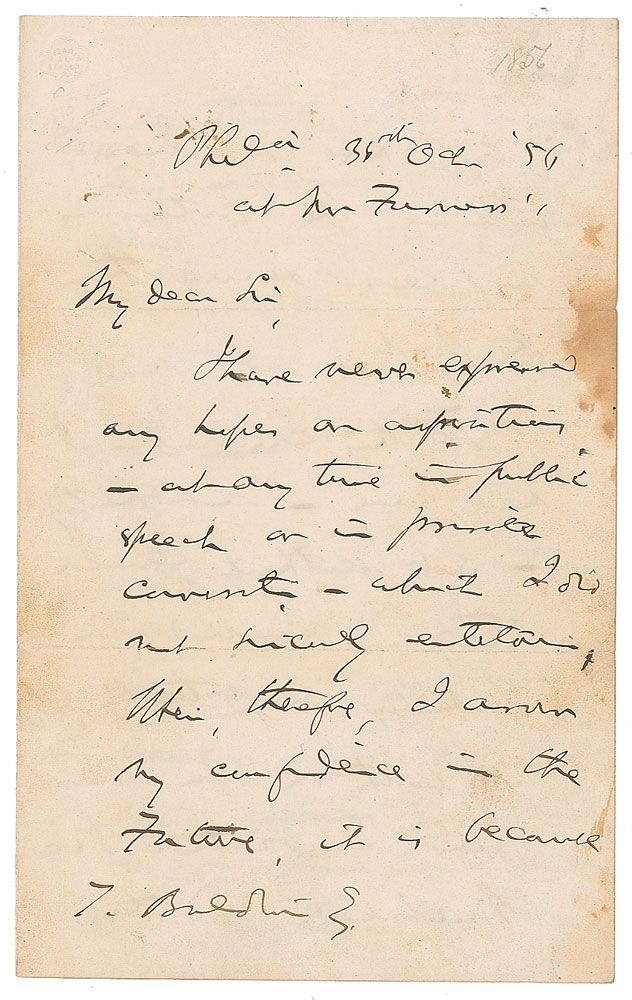 1856
Phila 30th Oct. '56
at Mr Furness's
My dear Sir,
I have never expressed
any hopes or aspirations
– at any time in public
speech or in private
conversation – which I did
not sincerely entertain.
When, therefore, I avow
my confidence in the
Future, it is because
T. Baldwin E.